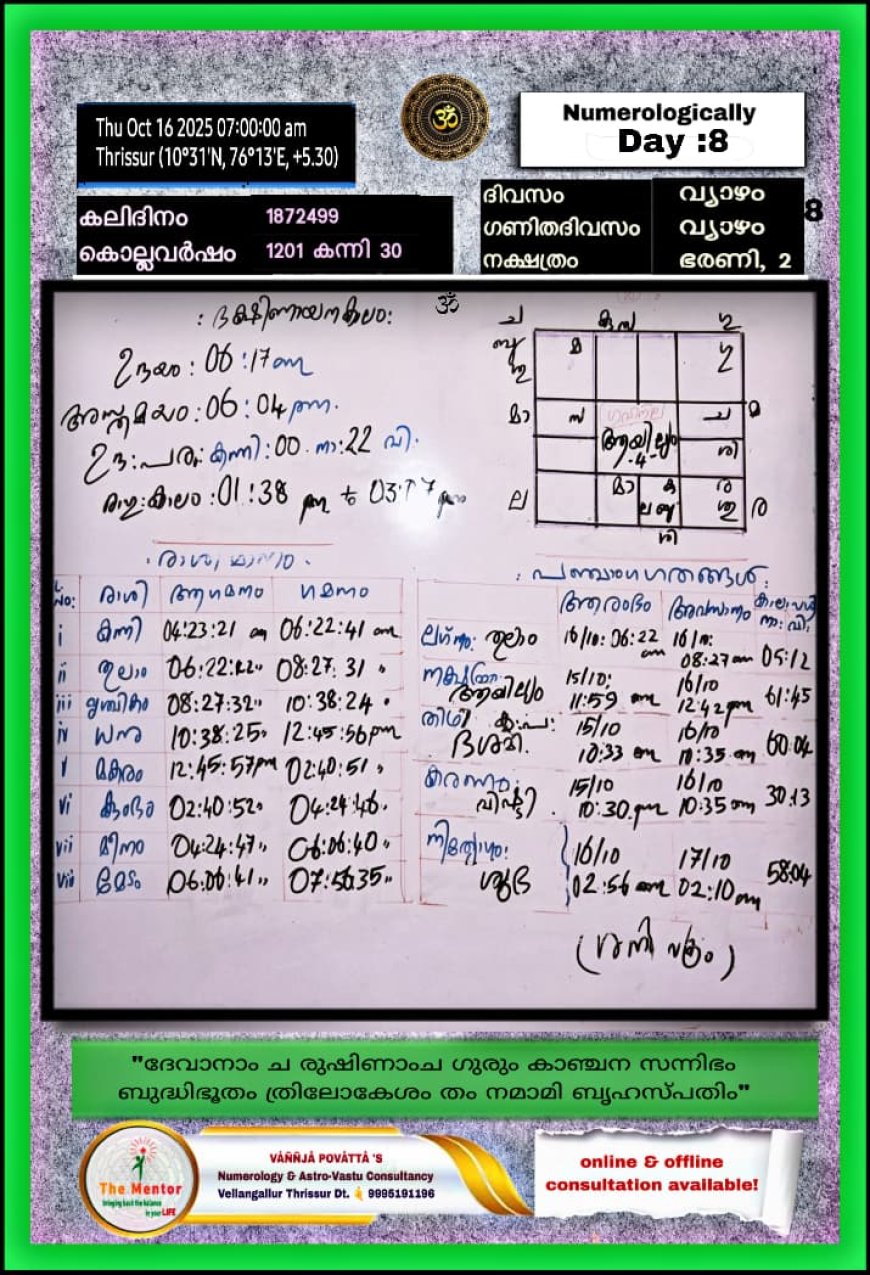 Thu Oct 16 2025 07:00:00 am
Thrissur (10°31'N, 76°13'E, +5.30)
ॐ
Numerologically
Day :8
കലിദിനം 1872499
കൊല്ലവർഷം 1201 കന്നി 30
ദിവസം വ്യാഴം
8
ഗണിതദിവസം വ്യാഴം
നക്ഷത്രം ഭരണി, 2
ॐ
: ദക്ഷിണായനകാലം:
ഉദയം : 06:17 am
അസ്തമയം : 06:04 pm.
ഉദ: പരം: കന്നി : 00 നാ: 22 വി.
രാഹുകാലം : 01:38 pm to 03:07 pm
ച കുസ ഗു
മ ഗു
മാ സ ച മ
ആയില്യം
-4-
ശി
ല മാ ര
: രാശിമാനം.
രാശി ആഗമനം ഗമനം
i കന്നി 04:23:21 am 06:22:41 am
ii തുലാം 06:22:42" 08:27:31 "
iii വൃശ്ചികം 08:27:32" 10:38:24 "
iv ധനു 10:38:25" 12:45:56 pm
v മകരം 12:45:57 pm 02:40:51 "
vi കുംഭം 02:40:52" 04:24:46"
vii മീനം 04:24:47" 06:06:40"
viii മേടം 06:06:41" 07:56:35"
: പഞ്ചാംഗഗതങ്ങൾ:
ആരംഭം അവസാനം
നാ: വി.
ലഗ്നം: തുലാം 16/10: 06:22 am 16/10: 08:27 am 05:12
നക്ഷത്രം: ആയില്യം 15/10: 11:59 am 16/10 12:42 pm 61:45
തിഥി: കൃ:പ: ദശമി. 15/10 10:33 am 16/10 10:35 am 60:04
കരണം: വിഷ്ടി 15/10 10:30 pm 16/10 10:35 am 30:13
നിത്യയോഗം: ശുഭ 16/10 02:56 am 17/10 02:10 am 58:04
(ശനി വക്രം)
"ദേവാനാം ച രുഷിണാംച ഗുരും കാഞ്ചന സന്നിഭം
ബുദ്ധിഭൂതം ത്രിലോകേശം തം നമാമി ബൃഹസ്പതിം"
The Mentor
bringing back the balance
in your LIFE
VÀÑÑJÀ POVÀTTÀ 'S
Numerology & Astro-Vastu Consultancy
Vellangallur Thrissur Dt. 🤙 9995191196
online & offline
consultation available!